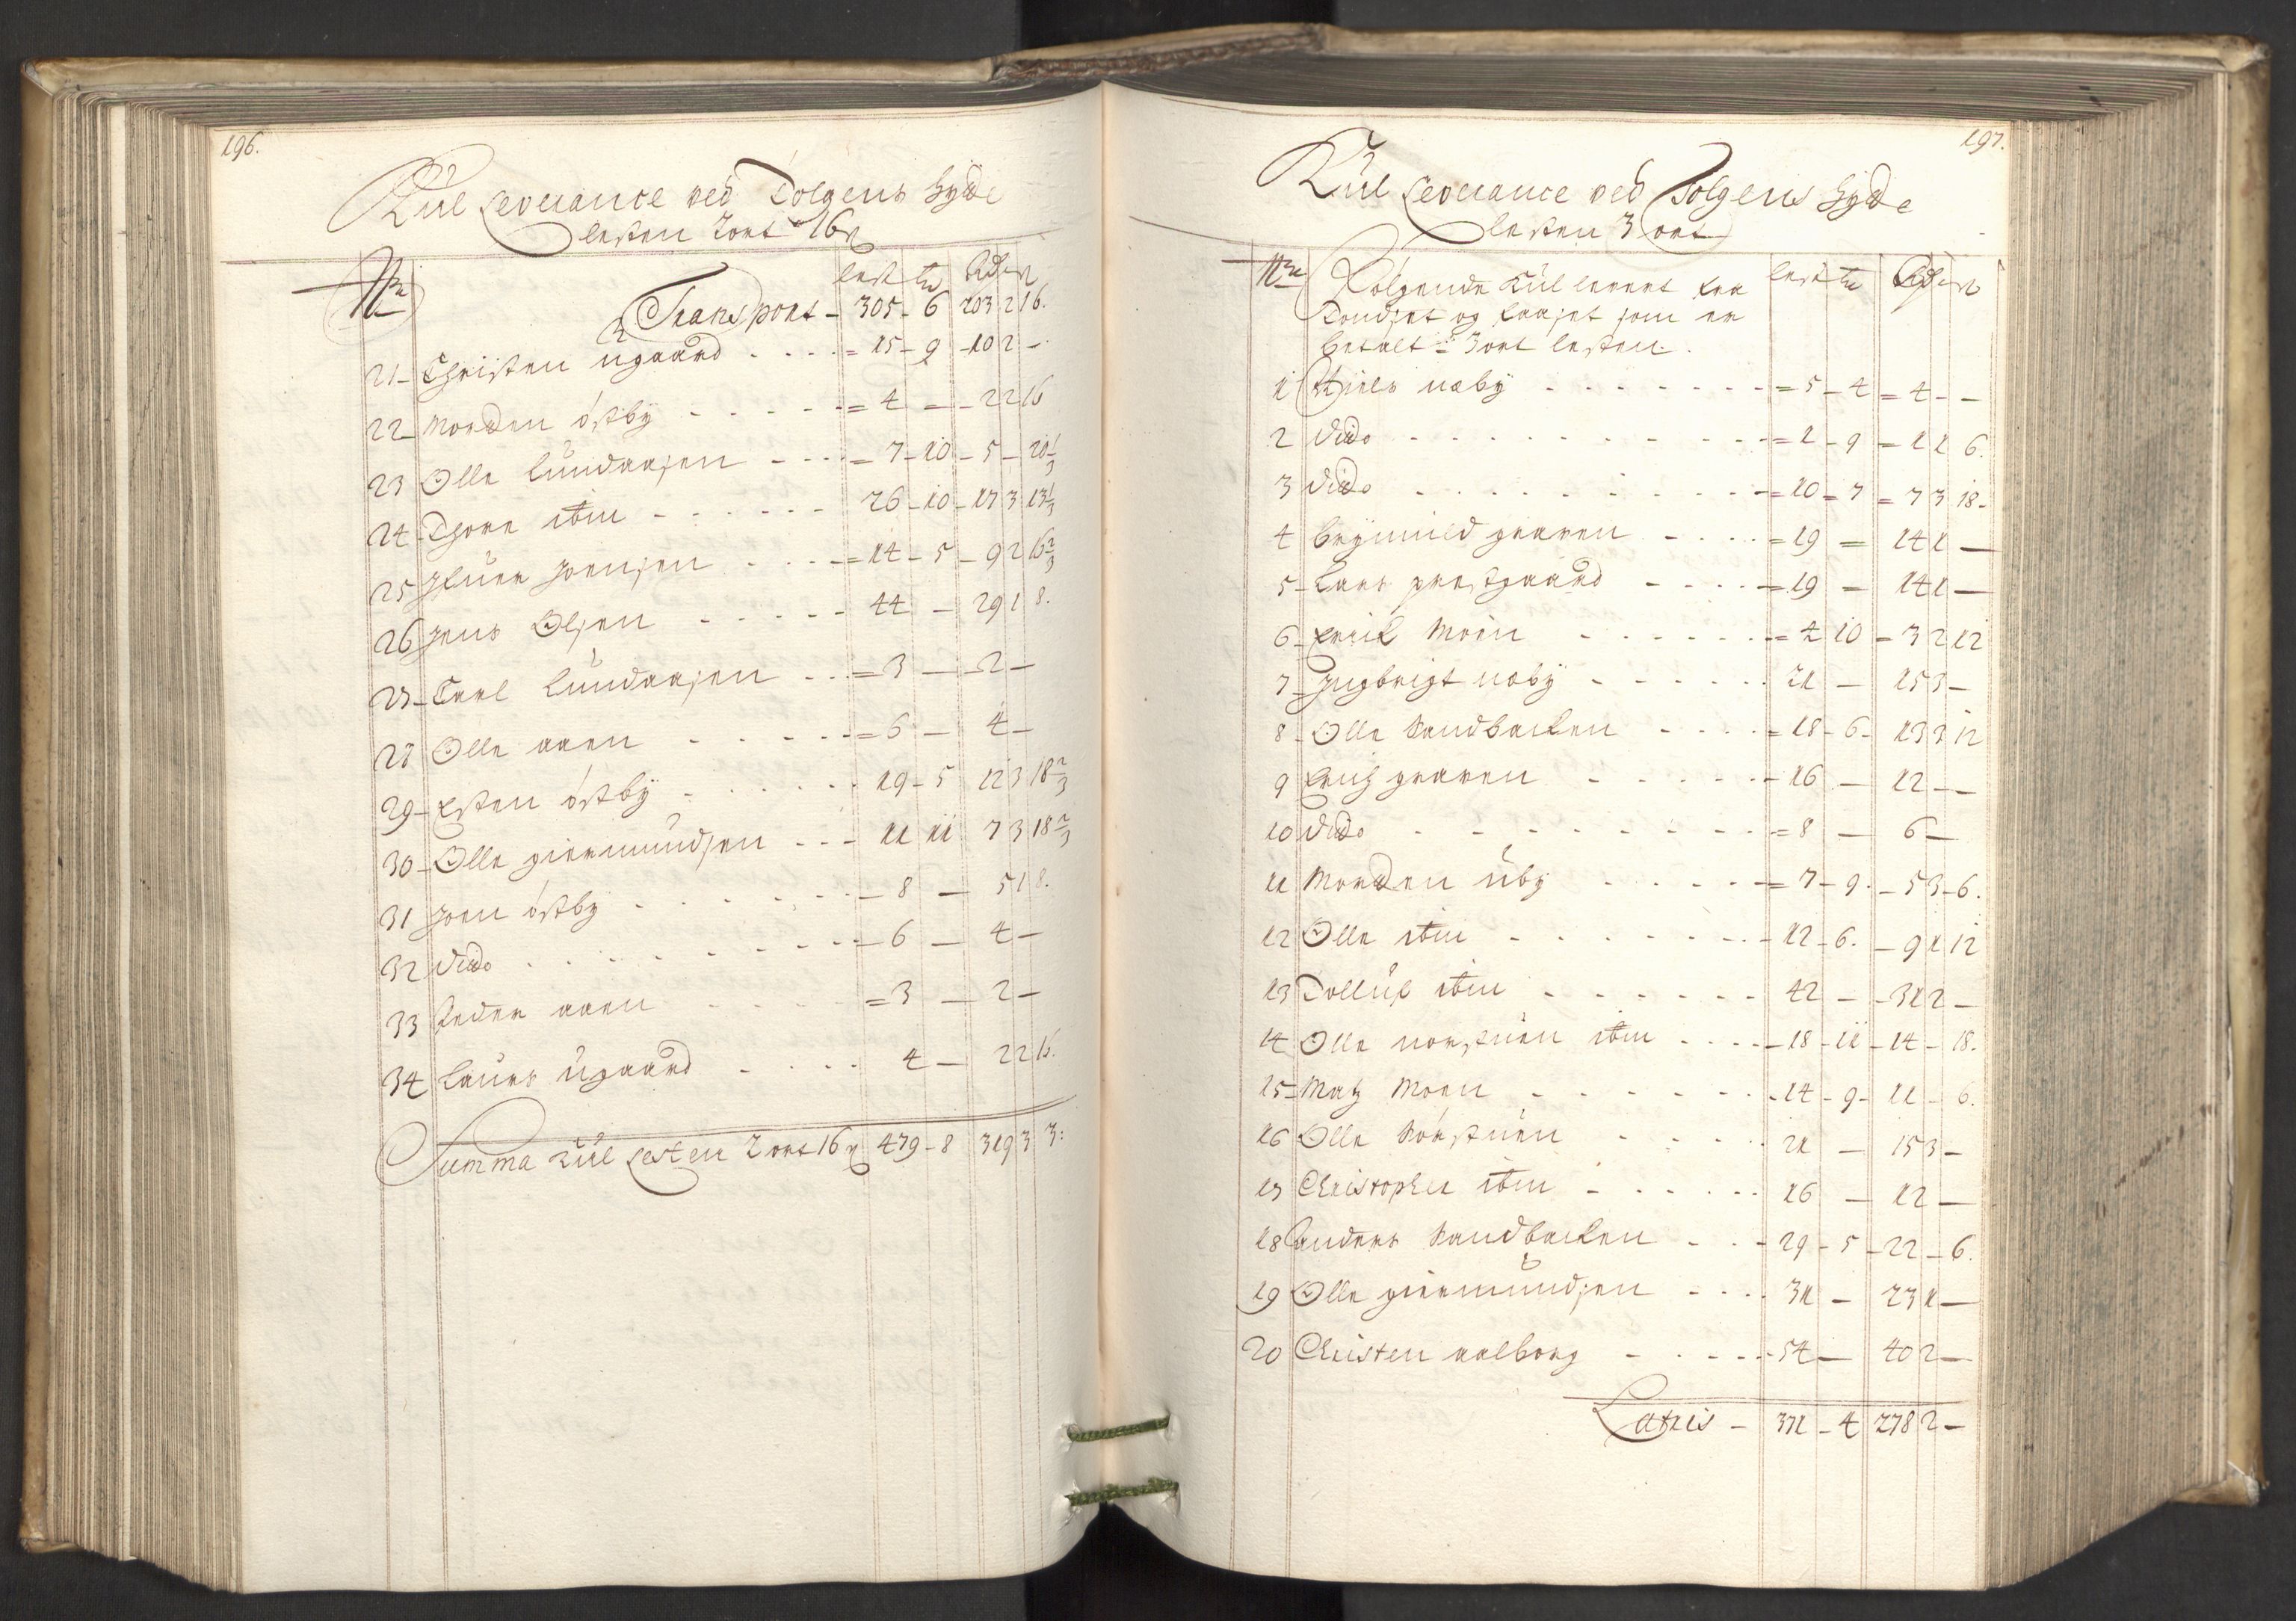 196.
Kul Leverance ved Tolgens hytte
lesten 2 ort 16 s
No
lest tn Rd ort s
Transport - 305 - 6 203 2 16.
21 - Christen ugaard - - - - = 15 - 9 - 10 2 -
22 - Morten østby - - - - - = 4 - - 2 2 16
23 Olle Lundaasen - - - = 7 - 10 - 5 - 20 1/3
24 - Thore itm - - - - - - 26 - 10 - 17 3 13 1/3
25 Joensen - - - = 14 - 5 - 9 2 10 2/3
26 Jens Olsen - - - - - 44 - 29 1 8.
27 - Carl Lundaasen - - = 3 - - 2 -
28 Olle aaen - - - - - = 6 - 4 -
29 - Esten østby - - - - - - 19 - 5 12 3 18 2/3
30 - Olle giermundsen - - - 11 11 7 3 18 2/3
31 Joen østby - - - - - - - 8 - 5 1 8.
32 dido - - - - - - - - 6 - 4 -
33 Peder aaen - - - - = 3 - 2 -
34 Laurs Ugaard - - - - 4 - 2 2 16.
Summa kul Lesten 2 ort 16 s 479 - 8 319 3 3:
197.
Kul Leverance ved Tolgens hytte
lesten 3 ort
No Følgende kul levert fra lest tn Rd ort s
Tondset og som er
betalt = 3 ort lesten.
1 Niels næby - - - - - - - = 5 - 4 = 4 - -
2 dido - - - - - - - - - = 1 - 9 - 1 1 6.
3 dido - - - - - - - - - = 10 = 7 = 7 3 18 -
4 Brynnild graven - - - = 19 = 14 1 -
5 - Lars prestgaard - - - - = 19 = 14 1 -
6 - Erik Moen - - - - - - = 4 10 = 3 2 12
7 - Ingbrigt næby - - - - - - 21 - 15 3 -
8 - Olle Sandbacken - - - - = 18 - 6 - 13 3 12
9 Erich graven - - - - - - 16 - 12 - -
10 dido - - - - - - - - - = 8 - 6 -
11 Morten uby - - - - - = 7 - 9. - 5 3 - 6.
12 Olle itm - - - - - - - - 12 - 6. - 9 1 12
13 Tolluf itm - - - - - - 42 - - 31 2 -
14 Olle norstuen itm - - - - 18 - 11 - 14 - 18.
15 - Matz Moen - - - - - - - 14 - 9 - 11 - 6.
16 Olle Sørstuen - - - - - 21 - 15 3 -
17 Christopher itm - - - - - 16 - 12 -
18 anders Sandbacken - - - 29 - 5 - 22 - 6.
19 Olle giermundsen - - - - 31 - 23 1 -
20 Christen aalborg - - - - - 54 - 40 2 -
Lateris - 371 - 4 278 2 -